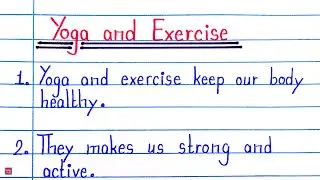 Yoga and Exercise
1. Yoga and exercise keep our body
healthy.
2. They makes us strong and
active.